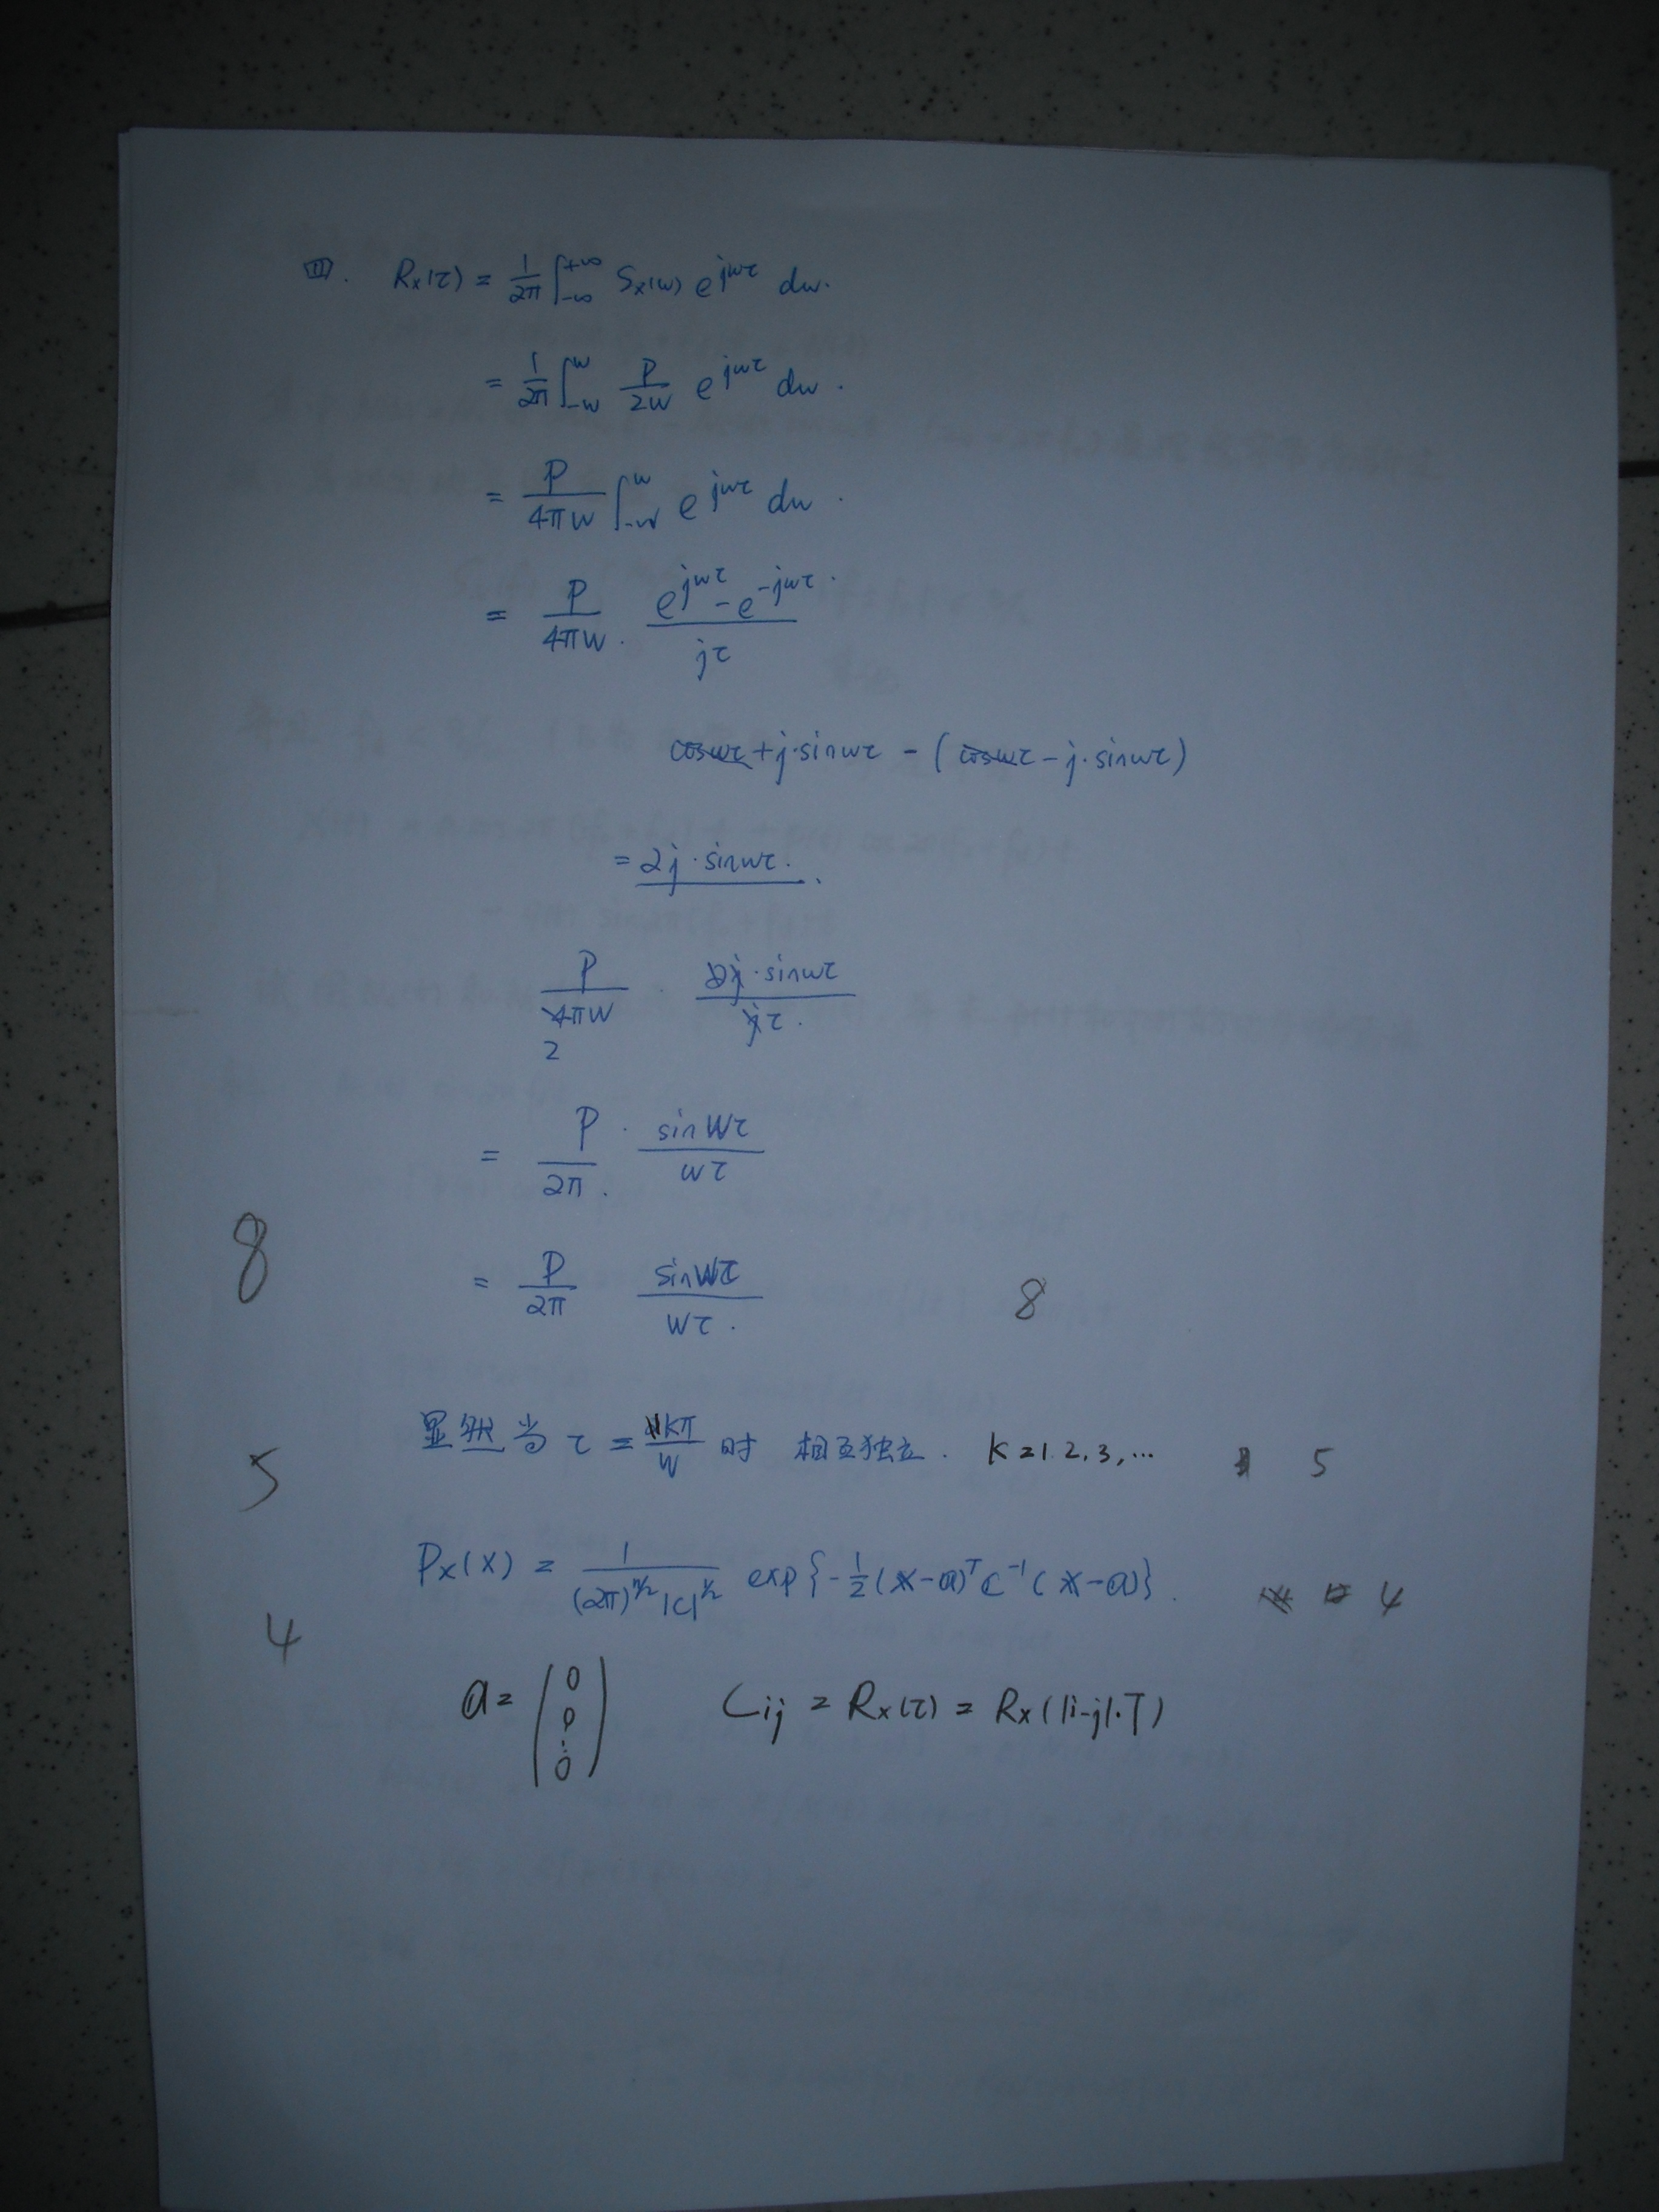 四. Rx(τ) = 1/2π ∫_{-∞}^{+∞} Sx(w) e^{jwτ} dw.
= 1/2π ∫_{-W}^{W} P/2W e^{jwτ} dw.
= P/4πW ∫_{-W}^{W} e^{jwτ} dw.
= P/4πW · (e^{jwτ} - e^{-jwτ})/jτ
coswτ + j·sinwτ - (coswτ - j·sinwτ)
= 2j·sinwτ.
P/4πW · 2j·sinwτ/jτ.
2
= P/2π · sinWτ/Wτ
8
= P/2π sinWτ/Wτ. 8
5 显然当 τ = kπ/W 时 相互独立. K=1.2,3,… 5
Px(X) = 1/((2π)^{n/2}|C|^{1/2}) exp{-1/2(X-a)^T C^{-1}(X-a)}. 4
4
a = (0 0 ⋮ 0) Cij = Rx(τ) = Rx(|i-j|·T)